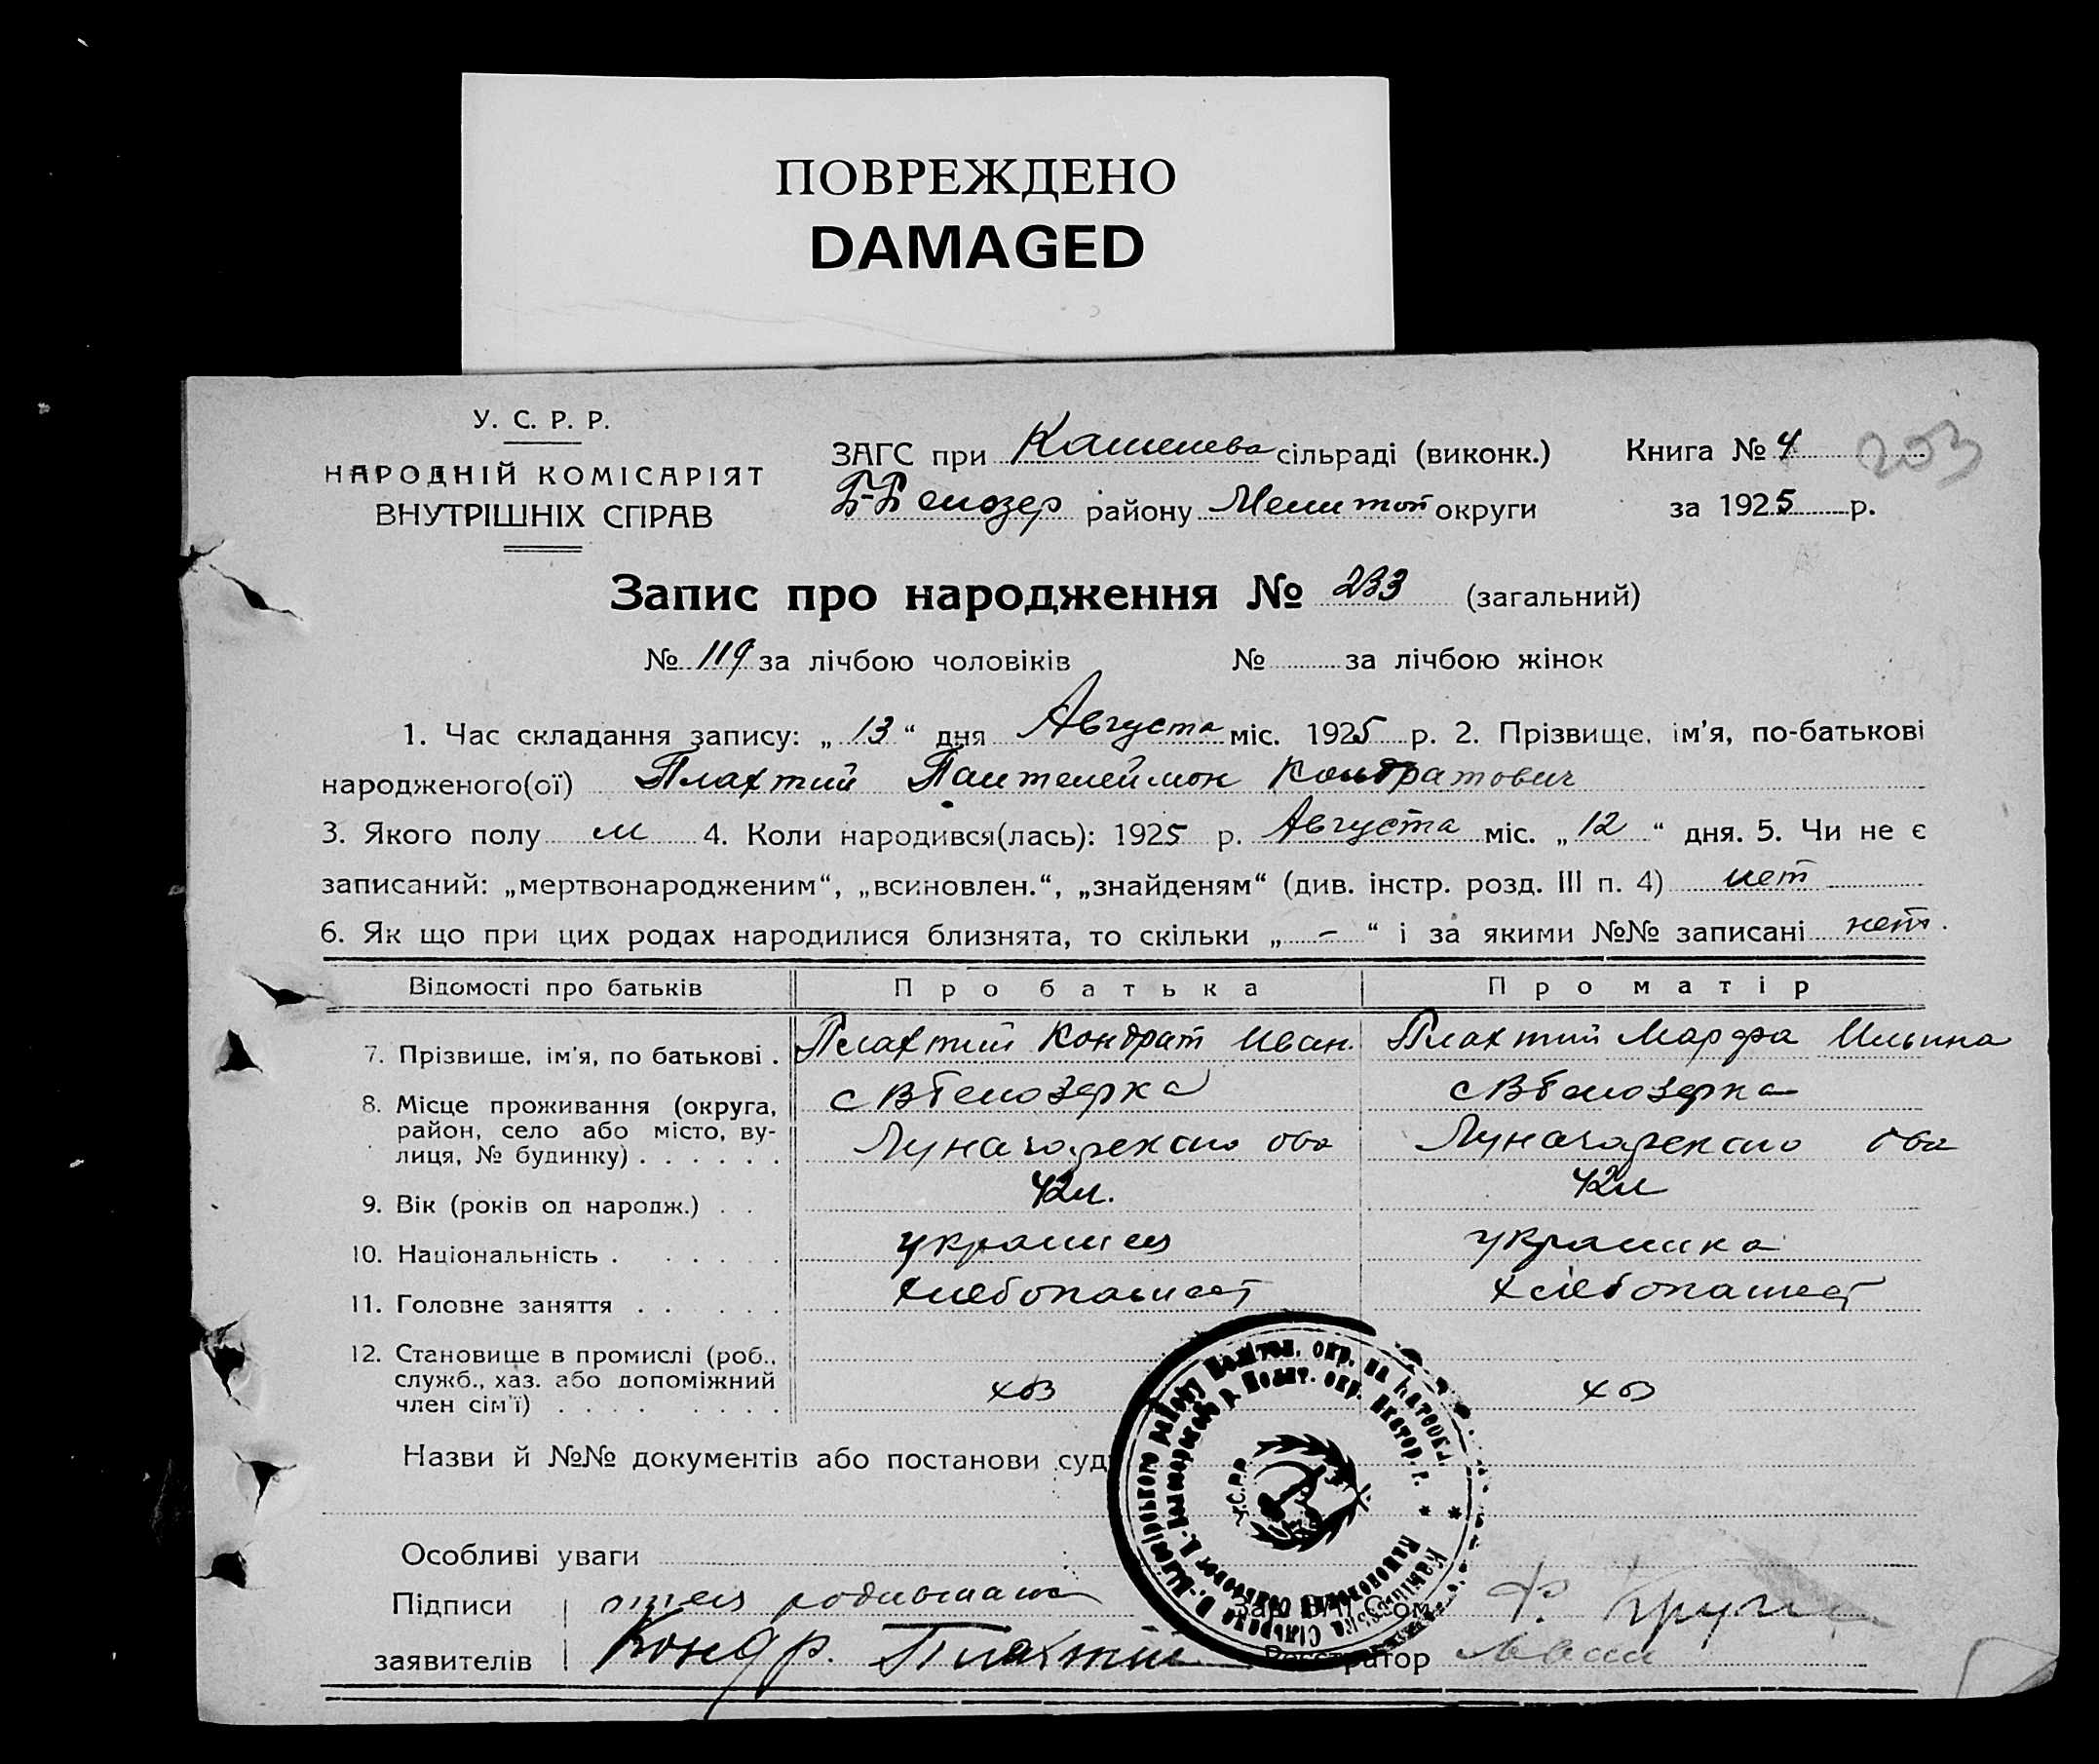 ПОВРЕЖДЕНО
DAMAGED
У. С. Р. Р.
НАРОДНІЙ КОМІСАРІЯТ
ВНУТРІШНІХ СПРАВ
ЗАГС при сільраді (виконк.)
району Мелитоп округи
Книга № 4
203
за 1925 р.
Запис про народження № 233 (загальний)
№ 119 за лічбою чоловіків № за лічбою жінок
1. Час складання запису: „ 13 “ дня Августа міс. 1925 р. 2. Прізвище, ім'я, по-батькові
народженого(ої) Плахтий Пантелеймон Кондратович
3. Якого полу м 4. Коли народився(лась): 1925 р. Августа міс. „ 12 “ дня. 5. Чи не є
записаний: „мертвонародженим“, „всиновлен.“, „знайденям“ (див. інстр. розд. III п. 4) нет
6. Як що при цих родах народилися близнята, то скільки „ – “ і за якими №№ записані нет.
Відомості про батьків Про батька Про матір
7. Прізвище, ім'я, по батькові . Плахтий Кондрат Иван. Плахтий Марфа Ильина
8. Місце проживання (округа, с ВБелозерка с ВБелозерка
район, село або місто, ву-
лиця, № будинку) . . . . . . Луначарского Луначарского
9. Вік (років од народж.) . . 42л. 42л
10. Національність . . . . . . украинец украинка
11. Головне заняття . . . . . хлебопашест хлебопашест
12. Становище в промислі (роб.,
служб., хаз. або допоміжний
член сім'ї) . . . . . . . . хоз хоз
Назви й №№ документів або постанови суд
У.С.Р.Р.
Особливі уваги
Підписи отец
заявителів Кондр. Плахтий Реєстратор